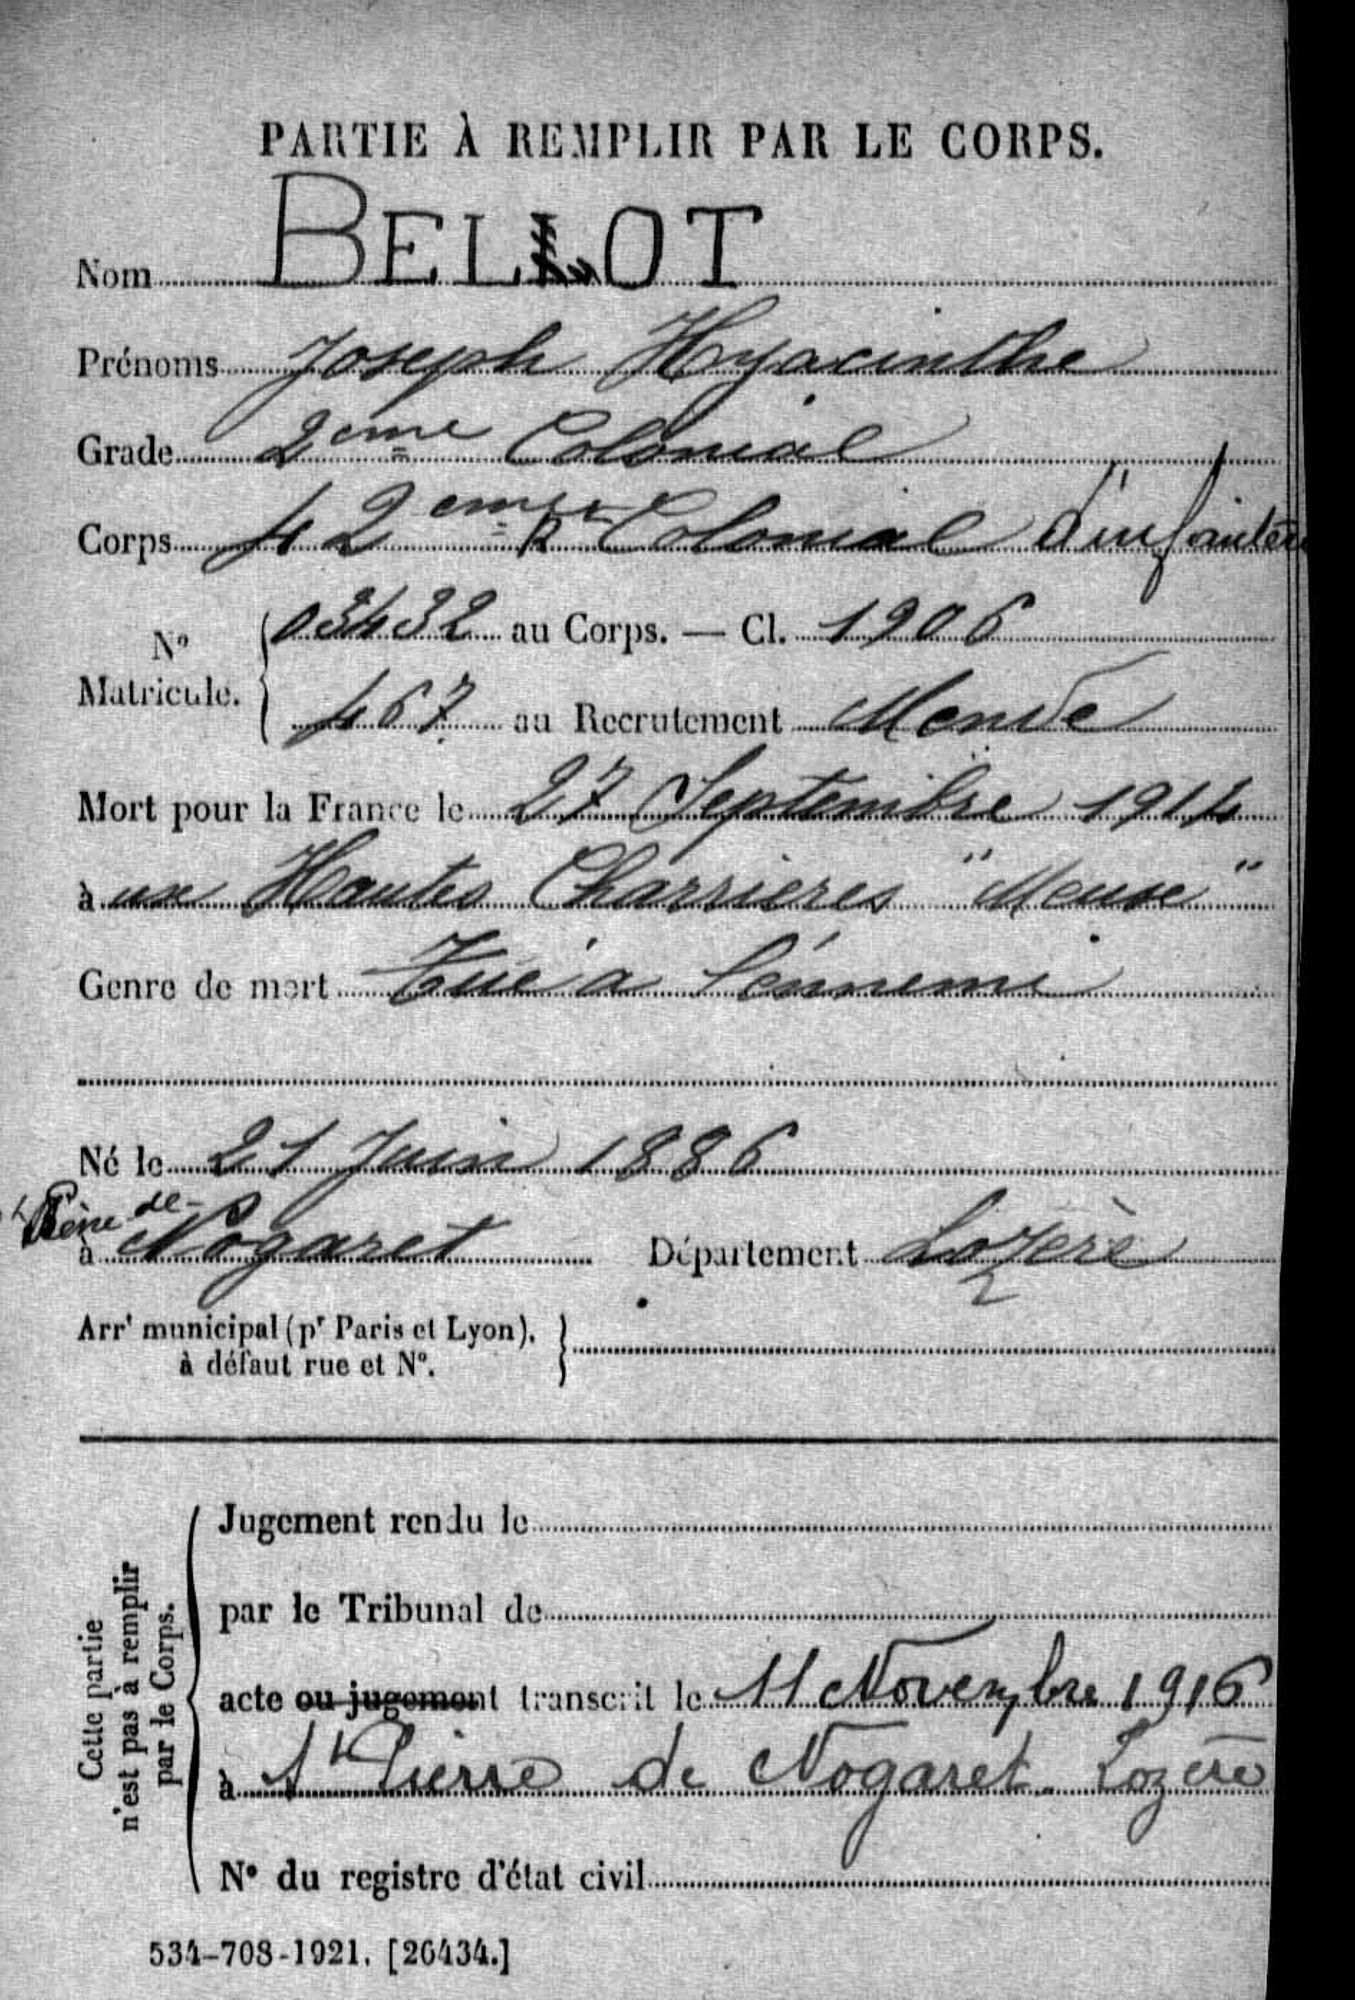 PARTIE À REMPLIR PAR LE CORPS.
Nom BELOT
Prénoms Joseph Hyacinthe
Grade 2eme Colonial
Corps 42eme R Colonial d'infanterie
N° Matricule. 03432 au Corps. — Cl. 1906
467 au Recrutement Mende
Mort pour la France le 27 Septembre 1914
à ux Hautes Charrieres "Meuse"
Genre de mort Tué a l'énnemi
Né le 21 Juin 1886
St Pierre de
à Nogaret Département Lozère
Arrt municipal (pr Paris et Lyon),
à défaut rue et N°.
Cette partie
n'est pas à remplir
par le Corps.
Jugement rendu le
par le Tribunal de
acte ou jugement transcrit le 11 Novembre 1916
à St Pierre de Nogaret. Lozère
N° du registre d'état civil
534-708-1921. [26434.]